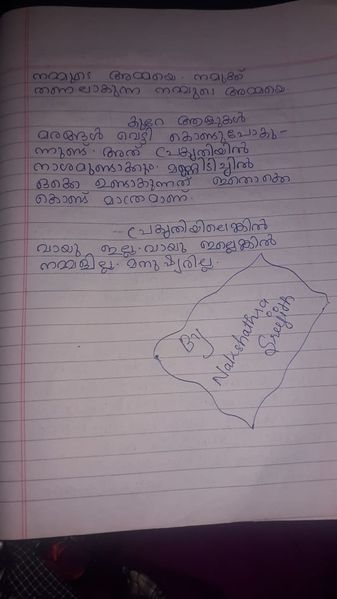 നമ്മുടെ അമ്മയെ. നമുക്ക്
തണലാകുന്ന നമ്മുടെ അമ്മയെ
കുറേ ആളുകൾ
മരങ്ങൾ വെട്ടി കൊണ്ടുപോകു-
ന്നുണ്ട്. അത് പ്രകൃതിയിൽ
നാശമുണ്ടാക്കും. മണ്ണിടിച്ചിൽ
ഒക്കെ ഉണ്ടാകുന്നത് ഇതൊക്കെ
കൊണ്ട് മാത്രമാണ്.
പ്രകൃതിയിലെങ്കിൽ
വായു ഇല്ല. വായു ഇല്ലെങ്കിൽ
നമ്മളില്ല. മനുഷ്യരില്ല.
By
Nakshathra
Sreejith